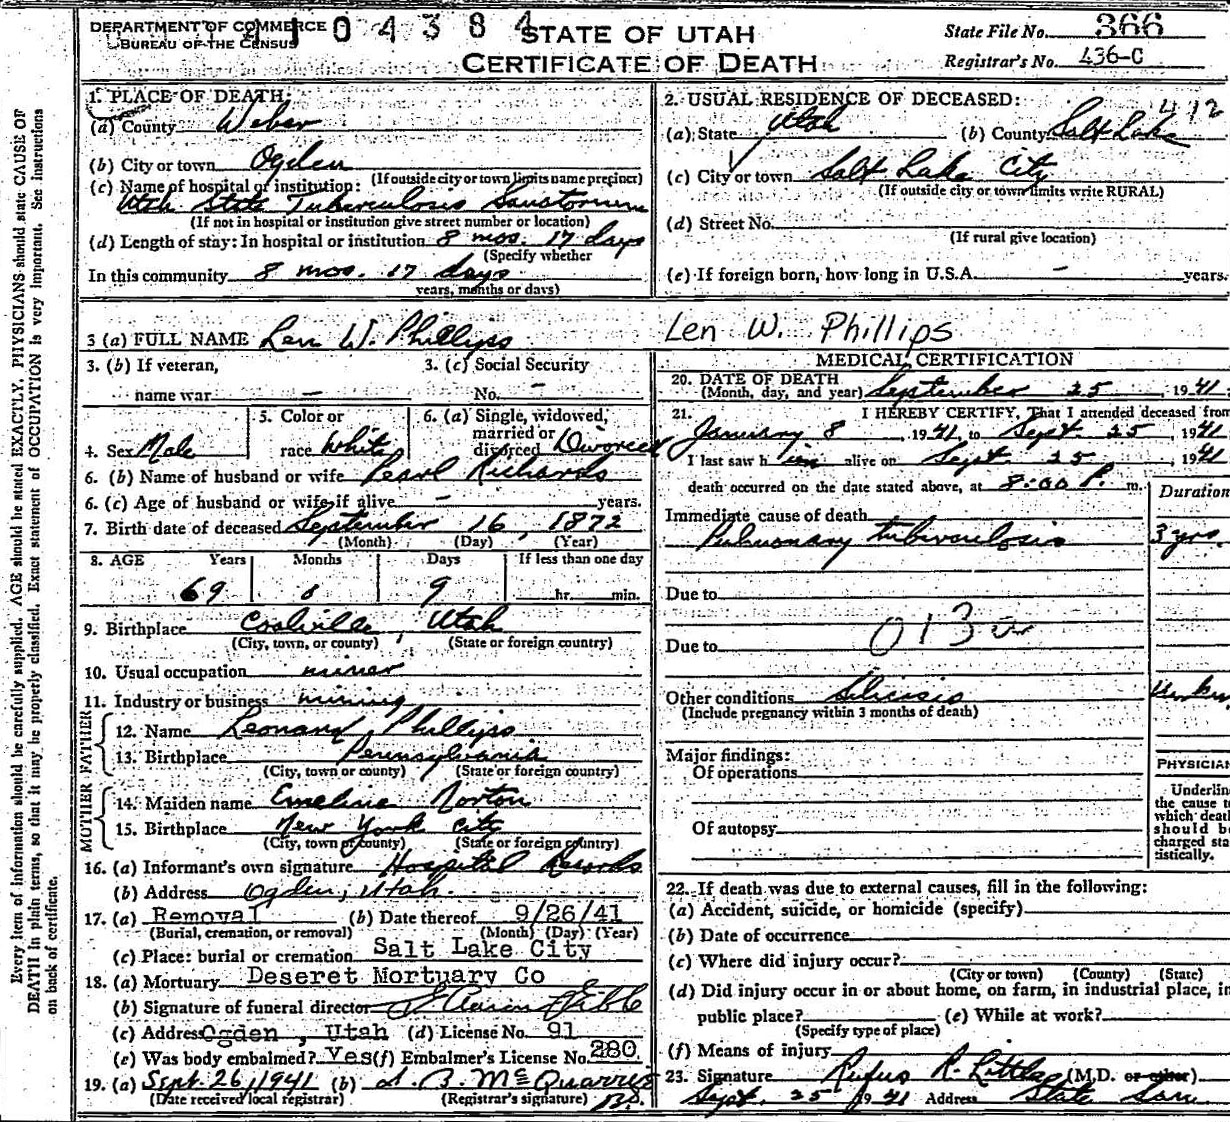 DEPARTMENT OF COMMERCE
BUREAU OF THE CENSUS
04384
STATE OF UTAH
CERTIFICATE OF DEATH
State File No. 366
Registrar's No. 436-C
Every item of information should be carefully supplied. AGE should be stated EXACTLY. PHYSICIANS should state CAUSE OF
DEATH in plain terms, so that it may be properly classified. Exact statement of OCCUPATION is very important. See instructions
on back of certificate.
1. PLACE OF DEATH:
(a) County Weber
(b) City or town Ogden
(If outside city or town limits name precinct)
(c) Name of hospital or institution:
Utah State Tuberculosis Sanatorium
(If not in hospital or institution give street number or location)
(d) Length of stay: In hospital or institution 8 mos. 17 days
(Specify whether
In this community 8 mos. 17 days
years, months or days)
2. USUAL RESIDENCE OF DECEASED: 412
(a) State Utah (b) County Salt Lake
(c) City or town Salt Lake City
(If outside city or town limits write RURAL)
(d) Street No.
(If rural give location)
(e) If foreign born, how long in U.S.A. - years.
3 (a) FULL NAME Len W. Phillips Len W. Phillips
3. (b) If veteran, 3. (c) Social Security
name war - No. -
4. Sex Male 5. Color or race White 6. (a) Single, widowed, married or divorced Divorced
6. (b) Name of husband or wife Pearl Richards
6. (c) Age of husband or wife if alive - years.
7. Birth date of deceased September 16, 1872
(Month) (Day) (Year)
8. AGE Years Months Days If less than one day
69 0 9 hr. min.
9. Birthplace Coalville, Utah
(City, town, or county) (State or foreign country)
10. Usual occupation miner
11. Industry or business mining
FATHER
12. Name Leonard Phillips
13. Birthplace Pennsylvania
(City, town or county) (State or foreign country)
MOTHER
14. Maiden name Emeline Norton
15. Birthplace New York City
(City, town or county) (State or foreign country)
16. (a) Informant's own signature Hospital Records
(b) Address Ogden, Utah.
17. (a) Removal (b) Date thereof 9/26/41
(Burial, cremation, or removal) (Month) (Day) (Year)
(c) Place: burial or cremation Salt Lake City
18. (a) Mortuary Deseret Mortuary Co
(b) Signature of funeral director
(c) Address Ogden, Utah (d) License No. 91
(e) Was body embalmed? Yes (f) Embalmer's License No. 280
19. (a) Sept. 26, 1941 (b) McQuarrie
(Date received local registrar) (Registrar's signature)
MEDICAL CERTIFICATION
20. DATE OF DEATH
(Month, day, and year) September 25, 1941
21. I HEREBY CERTIFY, That I attended deceased from
January 8, 1941 to Sept. 25, 1941
I last saw him alive on Sept. 25, 1941
death occurred on the date stated above, at 8:00 P. m.
Duration
Immediate cause of death
Pulmonary tuberculosis 3 yrs.
Due to
Due to 013
Other conditions Silicosis
(Include pregnancy within 3 months of death)
Major findings:
Of operations
Of autopsy
PHYSICIAN
Underline
the cause to
which death
should be
charged sta-
tistically.
22. If death was due to external causes, fill in the following:
(a) Accident, suicide, or homicide (specify)
(b) Date of occurrence
(c) Where did injury occur?
(City or town) (County) (State)
(d) Did injury occur in or about home, on farm, in industrial place, in
public place? (e) While at work?
(Specify type of place)
(f) Means of injury
23. Signature Rufus R. Little (M.D. or other)
Sept. 25 1941 Address State San.